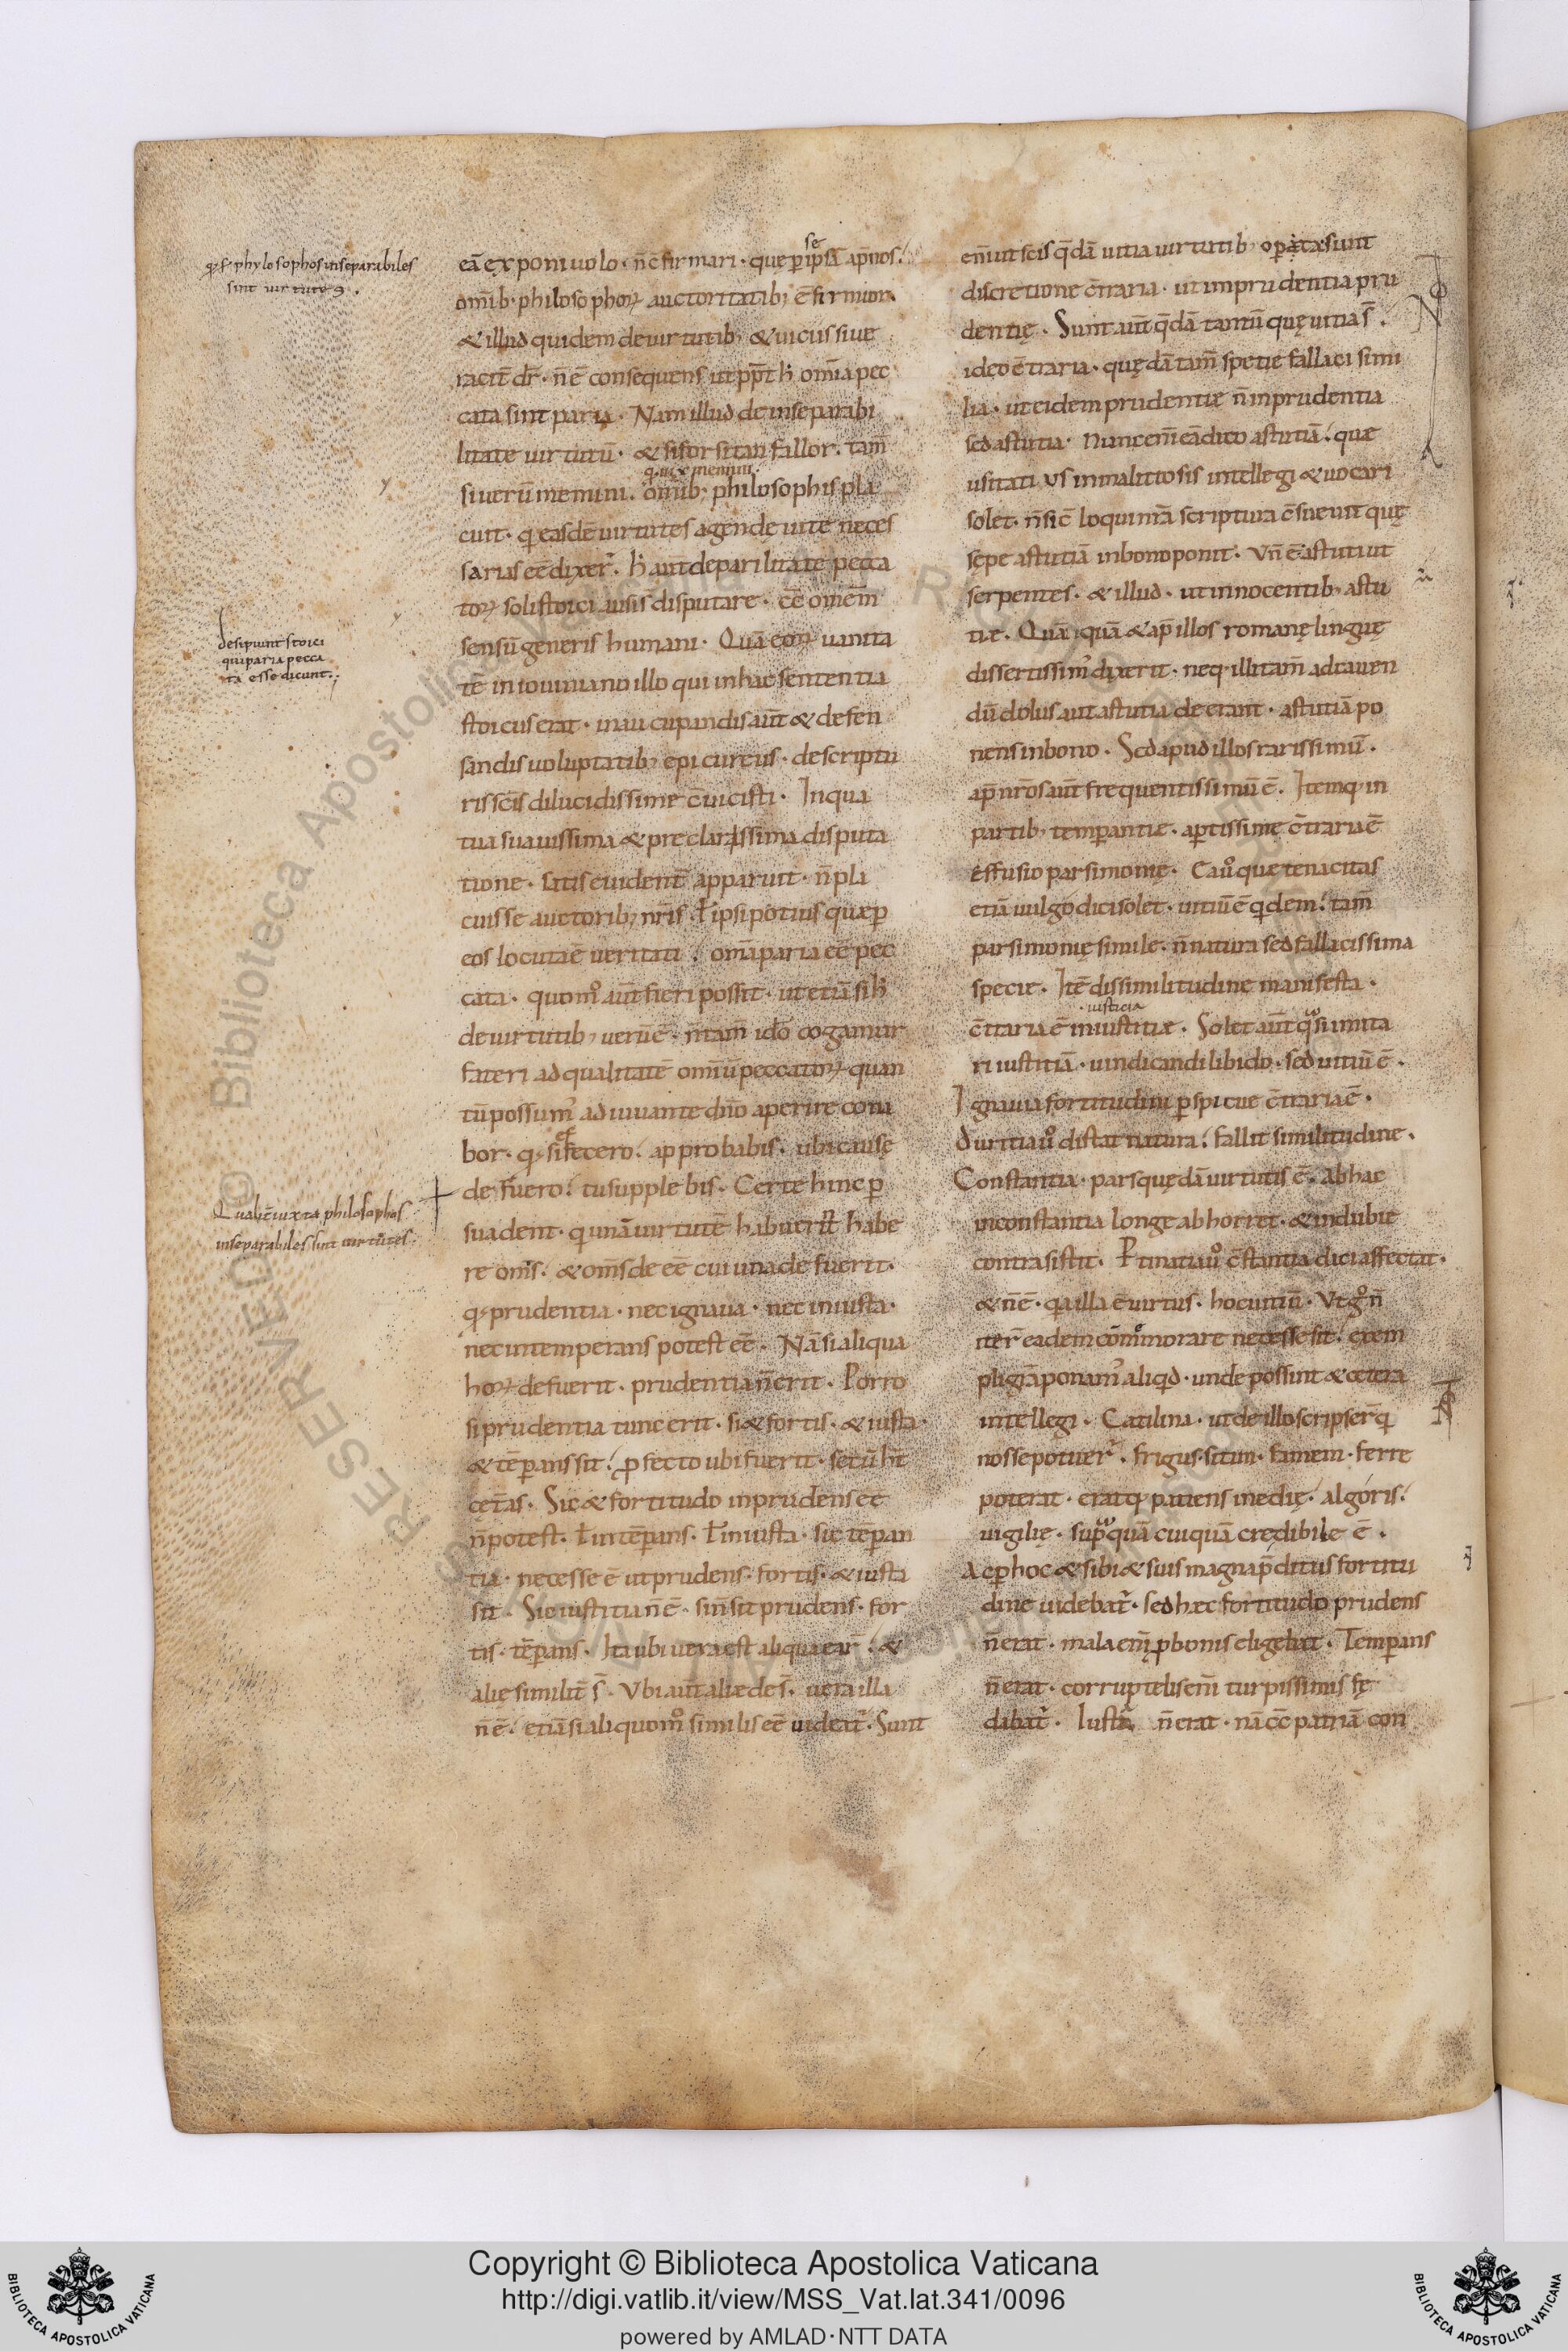 q̇ s̄ phylosophos inseparabiles
sint uirtutes.
eā exponi uolo · n̄ c̄firmari · quę p ipsā ap̄ nos /
se
om̅ib; philosophoꝝ auctoritatib; c̄firmior.
& illud quidem de uirtutib; & uicus siue
racit̄ dr̄ · n̄ ē consequens ut ppt̄ h̄ om̅ia pec
cata sint paria · Nam illud de inseparabi
litate uirtutū · & si forsitan fallor · tam̅
q. uix memini
si uerū memini · om̅ib; philosophis pla
cuit · q easdē uirtutes agendę uitę neces
sarias eē dixer̄ · h̄ aut̄ de parilitate pecca
toꝝ soli stoici ausi s̄ disputare · c̄ om̅em̅
desipiunt stoici
qui paria pecca
ta esse dicunt.
sensū generis humani · Quā eoꝝ uanita
tē in iouiniano illo qui in hac sententia
stoicus erat · in aucupandis aut̄ & defen
sandis uoluptatib; epicureus · descriptu
ris sc̄is dilucidissime c̄uicisti · In qua
tua suauissima & preclarissima disputa
tione · satis euident̄ apparuit · n̄ pla
cuisse auctorib; nr̄is · ł ipsi potius quę p
eos locuta ē ueritati / om̅ia paria eē pec
cata · quom̊ aut̄ fieri possit · ut etiā si h̄
de uirtutib; uerū ē · n̄ tam̅ ido cogamur
fateri ad qualitatē om̅iū peccatoꝝ quan
tū possum' adiuuante dn̄o aperire cona
bor · q si fecero / approbabis · ubi causę
defuero / tu supplebis · Certe hinc p
Qualit̄ iuxta philosophos
inseparabiles sint uirtutes.
suadent · q unā uirtutē habuerit habe
re om̅s / & om̅s deeē cui una defuerit ·
q prudentia · nec ignaua · nec iniusta ·
nec intemperans potest eē · Nā si aliqua
hoꝝ defuerit · prudentia n̄ erit · Porro
si prudentia tunc erit · si & fortis · & iusta
& tēperans sit / pfecto ubi fuerit · secū h̄t
cet̄as · Sic & fortitudo inprudens eē
n̄ potest · ł intēperans · ł iniusta · sic tēperan
tia · necesse ē ut prudens · fortis · & iusta
sit · Sic iustitia n̄ ē · si n̄ sit prudens · for
tis · tēperans · Ita ubi uera est aliqua eaꝝ / &
alię similit̄ s̄ · Vbi aut̄ alię des̄ · uera illa
n̄ ē / etiā si aliquom̊ similis eē uideat̄ · Sunt
eni̅ ut scis qdā uitia uirtutib; opposita sunt
discretione c̄traria · ut imprudentia pru
dentię · Sunt aut̄ qdā tantū quę uitia s̄ ·
ideo c̄traria · quędā tam̅ specie fallaci simi
lia · ut eidem prudentię n̄ inprudentia
sed astutia · Nunc eni̅ eā dico astutiā / quę
usitati us in malitiosis intellegi & uocari
solet · n̄ sic loqui nr̄a scriptura c̄sueuit quę
sępe astutiā in bono ponit · Vn̄ ē astuti ut
serpentes · & illud · ut innocentib; astu
tię · Quāquā & ap̄ illos romanę linguę
dissertissim' dixerit · neq; illi tam̅ ad cauen
dū dolus aut astutia deerant · astutiā po
nens in bono · Sed apud illos rarissimū ·
ap̄ nr̄os aut̄ frequentissimū ē · Itemq; in
partib; temperantię · aptissime c̄traria ē
effusio parsimonię · Ea ů quę tenacitas
etiā uulgo dici solet · uitiū ē qdem / tam̅
parsimonię simile · n̄ natura sed fallacissima
specie · Itē dissimilitudine manifesta ·
iusticia
c̄traria ē iniustitię · Solet aut̄ q̊si imita
ri iustitiā · uindicandi libido · sed uitiū ē ·
Ignauia fortitudini pspicue c̄traria ē ·
Duritia ů distat natura / fallit similitudine ·
Constantia · pars quędā uirtutis ē · ab hac
inconstantia longe abhorret · & indubie
contrasistit · Ptinatia ů c̄stantia dici affectat ·
& n̄ ē · q̄a illa ē uirtus · hoc uitiū · Vt g̊ n̄
iter̄ eadem cōmemorare necesse sit / exem
pli gr̄a ponam' aliqd · unde possint & cetera
intellegi · Catilina · ut de illo scripser̄ q
nosse potuer̄ · frigus · sitim · famem · ferre
poterat · eratq; patiens inedię · algoris /
uigilię · supra quā cuiquā credibile ē ·
Ac p hoc & sibi & suis magna p̄ditus fortitu
dine uidebat̄ · sed hæc fortitudo prudens
n̄ erat · mala eni̅ p bonis eligebat · Temperans
n̄ erat · corruptelis eni̅ turpissimis fę
dabat̄ · Iusta n̄ erat · nā c̄ patriā con
© Biblioteca Apostolica Vaticana
Copyright © Biblioteca Apostolica Vaticana
http://digi.vatlib.it/view/MSS_Vat.lat.341/0096
powered by AMLAD·NTT DATA
BIBLIOTECA APOSTOLICA VATICANA
BIBLIOTECA APOSTOLICA VATICANA